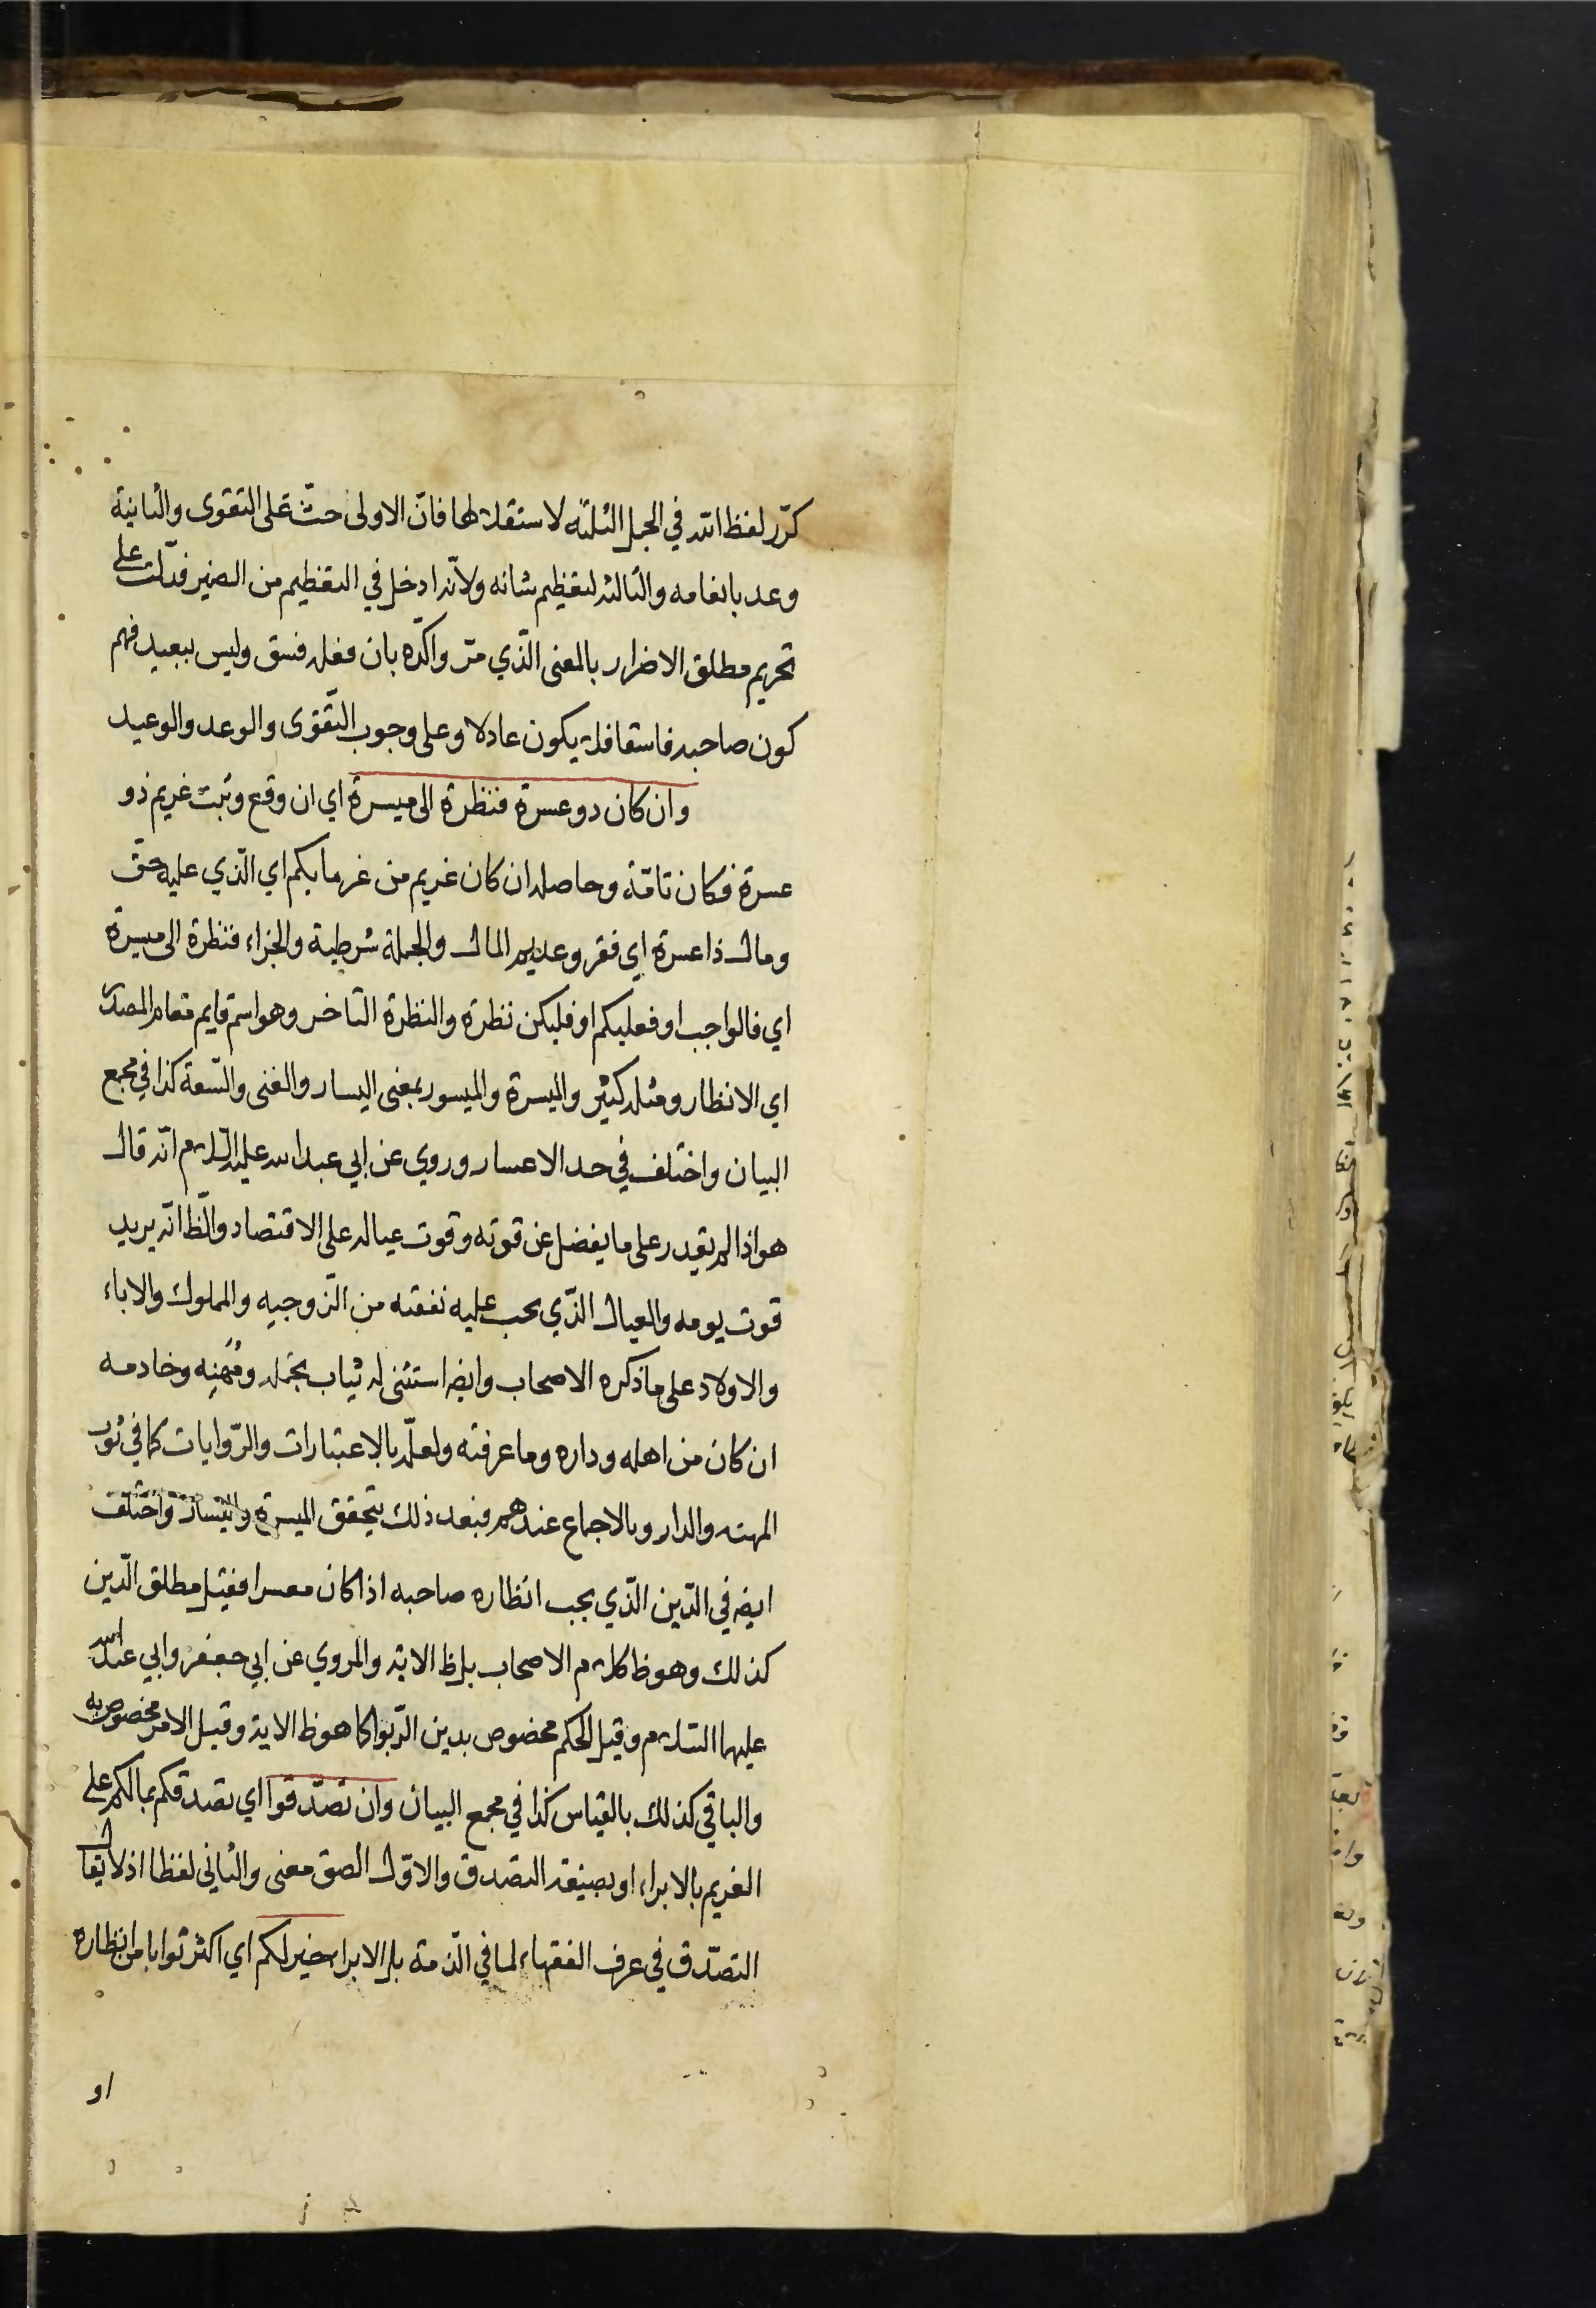 كرّر لفظ الله في الجمل الثلثه لاستقلالها فانّ الاولى حثّ على التقوى والثانية
وعد بانعامه والثالثه لتعظيم شانه ولانّه ادخل في التعظيم من الضمير فدلّت على
تحريم مطلق الاضرار بالمعنى الّذي مرّ واكّده بان فعله فسق وليس ببعيد فهم
كون صاحبه فاسقا فلا يكون عادلا وعلى وجوب التّقوى والوعد والوعيد
وان كان ذو عسرة فنظرة الى ميسرة اي ان وقع وثبت غريم ذو
عسرة فكان تامّة وحاصله ان كان غريم من غرمايكم اي الّذي عليه حق
ومال ذا عسرة اي فقر وعديم المال والجملة شرطية والجزاء فنظرة الى ميسرة
اي فالواجب او فعليكم او فليكن نظرة والنظرة التاخر وهو اسم قايم مقام المصدر
اي الانظار ومثله كثير والميسرة والميسور بمعنى اليسار والغنى والسّعة كذا في مجمع
البيان واختلف في حد الاعسار وروي عن ابي عبد الله عليه السّلام انّه قال
هو اذا لم يقدر على ما يفضل عن قوته وقوت عياله على الاقتصاد والظّ انّه يريد
قوت يومه والعيال الذّي يجب عليه نفقته من الزّوجيه والمملوك والاباء
والاولاد على ما ذكره الاصحاب وايضه استثنى له ثياب تجمّله ومهنه وخادمه
ان كان من اهله وداره وما عرفته ولعلّه بالاعتبارات والرّوايات كما في ثوب
المهنه والدار وبالاجماع عندهم فبعد ذلك يتحقق الميسرة واليسار واختلف
ايضه في الدّين الّذي يجب انظاره صاحبه اذا كان معسرا فقيل مطلق الدّين
كذلك وهو ظ كلام الاصحاب بل ظ الاية والمروي عن ابي جعفر وابي عبد الله
عليهما السّلام وقيل الحكم مخصوص بدين الرّبوا كما هو ظ الاية وقيل الامر مخصوص به
والباقي كذلك بالقياس كذا في مجمع البيان وان تصدّقوا اي تصدقكم بمالكم على
الغريم بالابراء او بصيغة التصدق والاوّل الصق معنى والثاني لفظا اذ لا يقال
التصدّق في عرف الفقهاء لما في الذّمة بل الابراء خير لكم اي اكثر ثوابا من انظاره
او